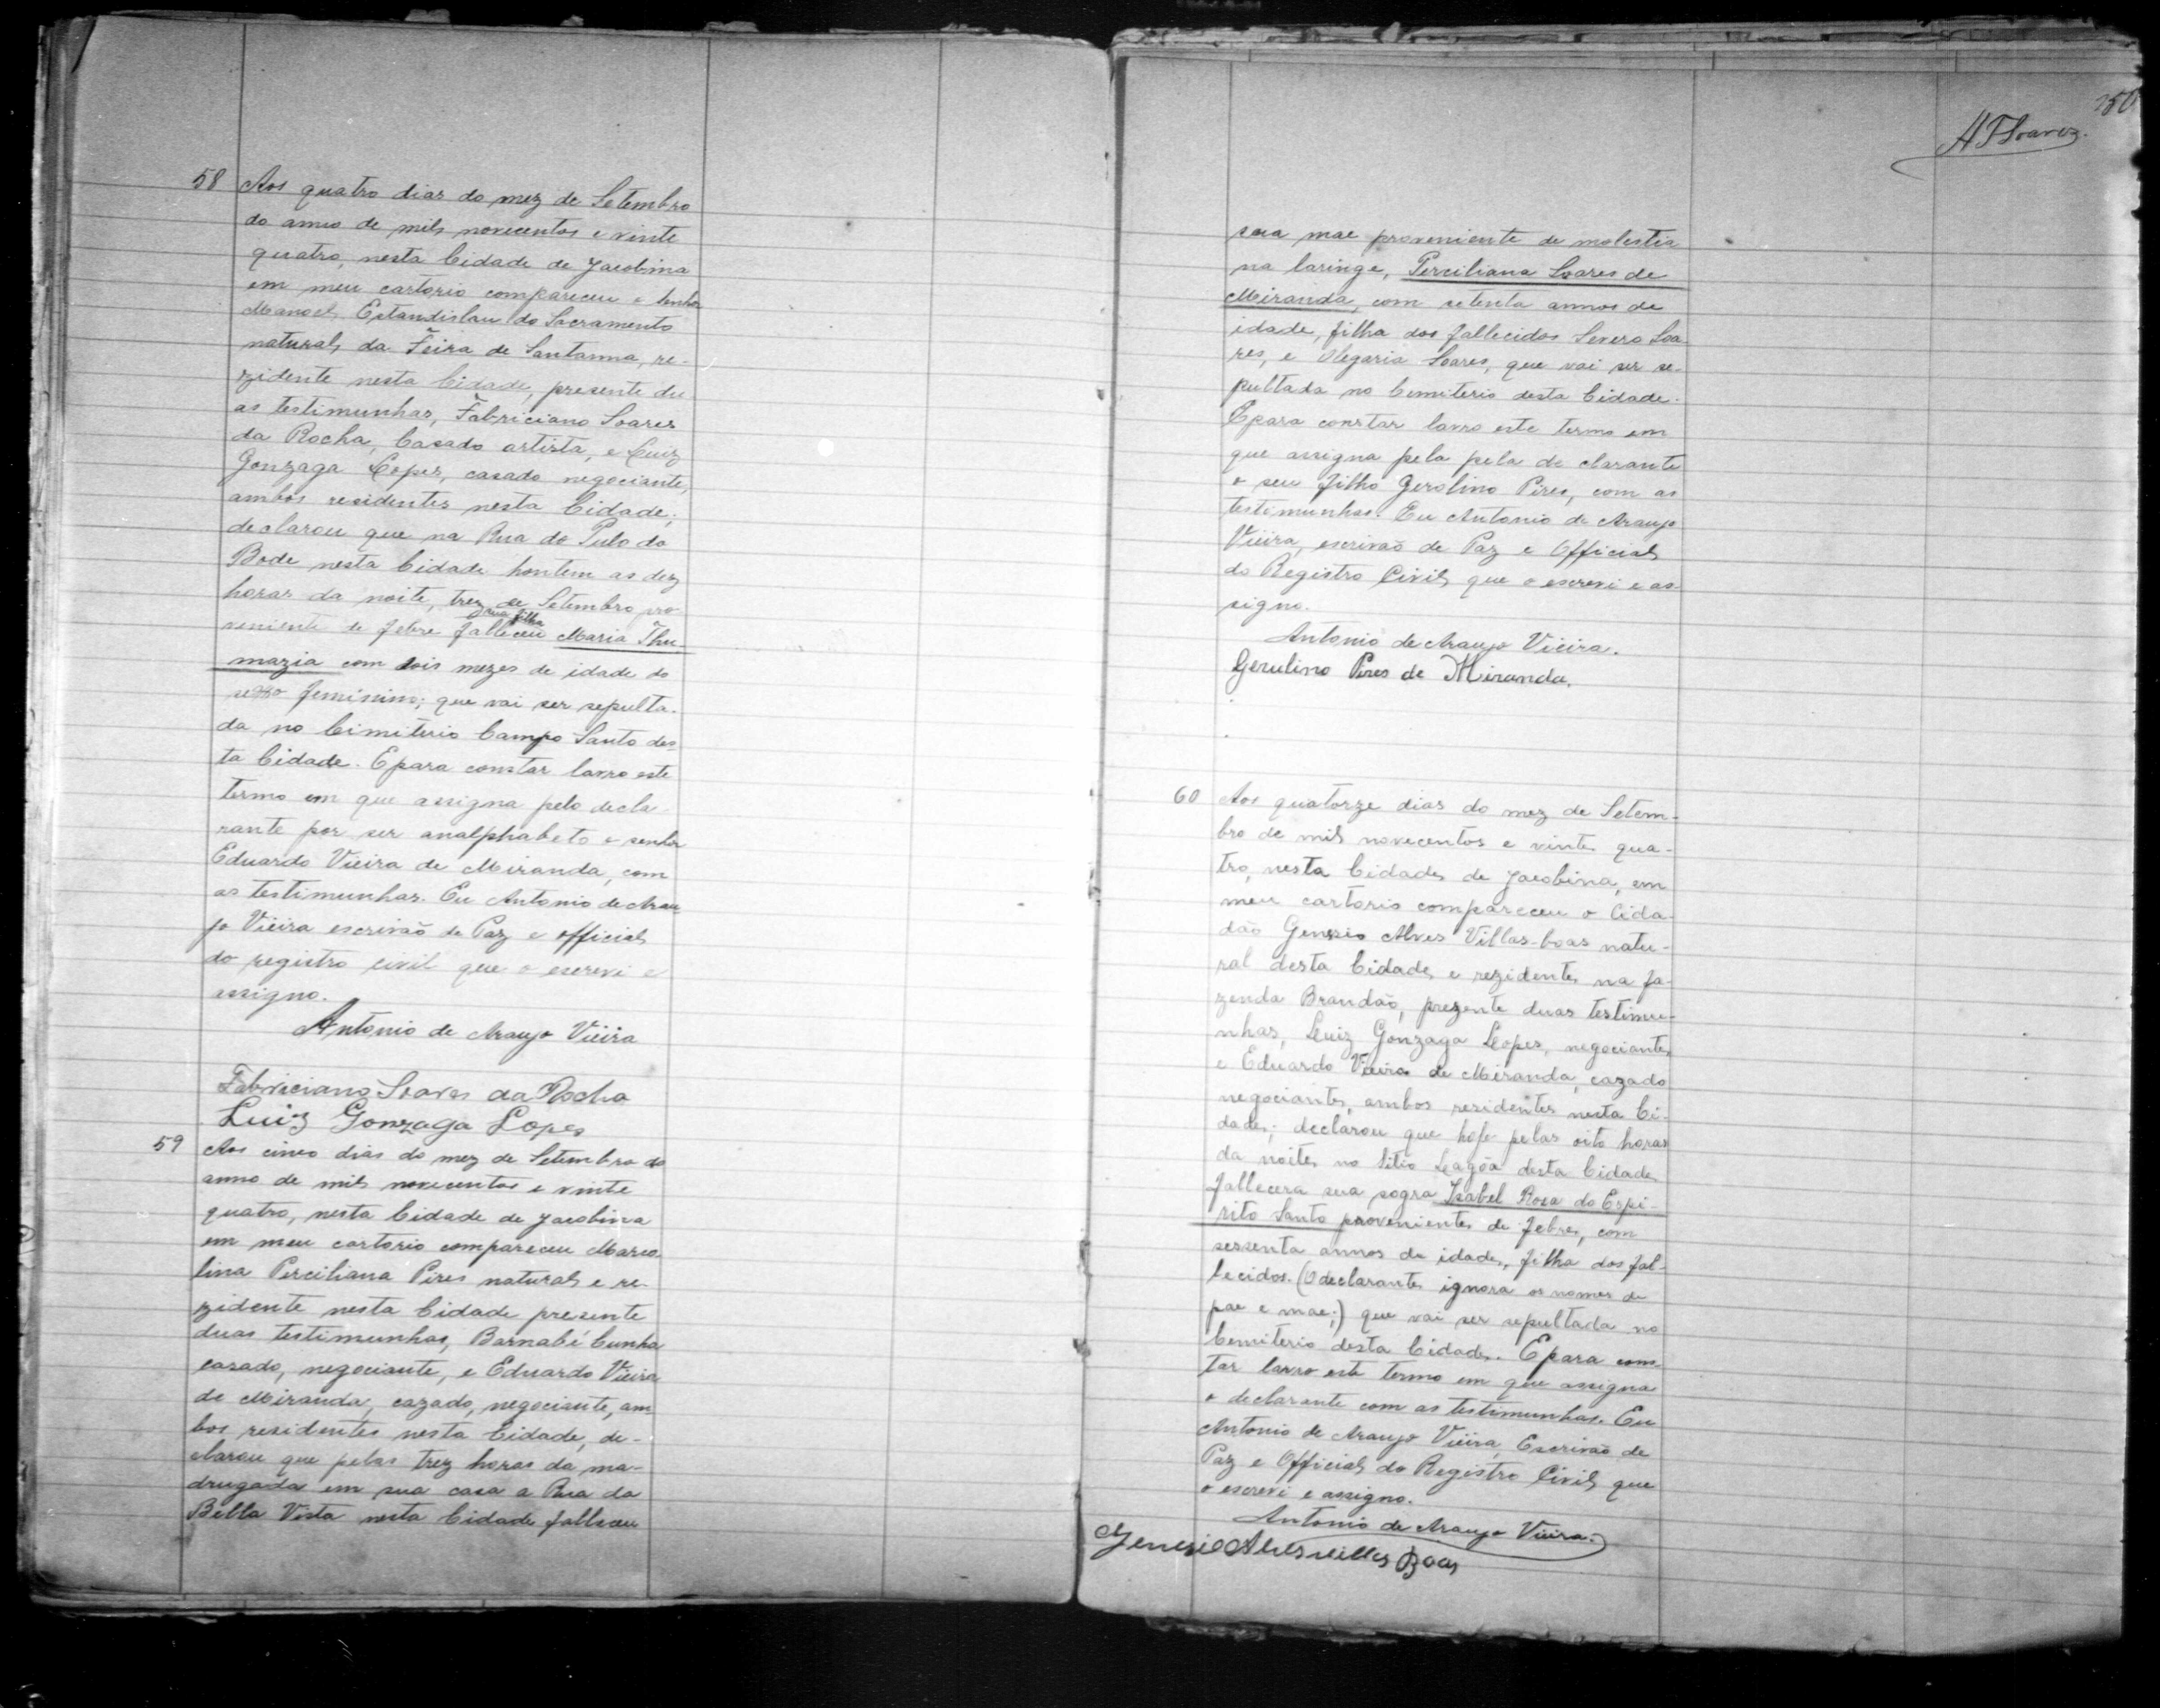 58 Aos quatro dias do mez de Setembro
do anno de mil novecentos e vinte
quatro, nesta Cidade de Jacobina
em meu cartorio compareceu o senhor
Manoel Estandislau do Sacramento
natural da Feira de Santanna, re-
zidente nesta Cidade, presente du
as testimunhas, Fabriciano Soares
da Rocha, Casado artista, e Luiz
Gonzaga Lopes, casado negociante,
ambos residentes nesta Cidade;
declarou que na Rua do Pulo do
Bode nesta Cidade hontem as dez
horas da noite, trez de Setembro pro
sua filha
veniente de febre falleceu Maria Thu
mazia com dois mezes de idade do
sexo feminino; que vai ser sepulta-
da no Cimiterio Campo Santo des-
ta Cidade. E para constar lavro este
termo em que assigna pelo decla-
rante por ser analphabeto o senhor
Eduardo Vieira de Miranda, com
as testimunhas. Eu Antonio de Arau
jo Vieira escrivão de Paz e official
do registro civil que o escrevi e
assigno.
Antonio de Araujo Vieira
Fabriciano Soares da Rocha
Luiz Gonzaga Lopes
59 Aos cinco dias do mez de Setembro do
anno de mil novecentos e vinte
quatro, nesta Cidade de Jacobina
em meu cartorio compareceu Marco
lina Perciliana Pires natural e re-
zidente nesta Cidade presente
duas testimunhas, Barnabé Cunha
casado, negociante, e Eduardo Vieira
de Miranda, cazado, negociante, am-
bos residentes nesta Cidade, de-
clarou que pelas trez horas da ma-
drugada em sua casa a Rua da
Bella Vista nesta Cidade falleceu
150
AFSoares.
sua mae proveniente de molestia
na laringe, Perciliana Soares de
Miranda, com setenta annos de
idade, filha dos fallecidos Severo Soa
res, e Olegaria Soares, que vai ser se-
pultada no Cemiterio desta Cidade.
E para constar lavro este termo em
que assigna pela pela de clarante
o seu filho Gerolino Pires, com as
testimunhas. Eu Antonio de Araujo
Vieira, escrivão de Paz e Official
do Registro Civil que o escrevi e as-
signo.
Antonio de Araujo Vieira.
Gerulino Pires de Miranda.
60 Aos quatorze dias do mez de Setem-
bro de mil novecentos e vinte qua-
tro, nesta Cidade de Jacobina, em
meu cartorio compareceu o Cida-
dão Genesio Alves Villas-boas natu-
ral desta Cidade e rezidente na fa-
zenda Brandão, prezente duas testimu-
nhas, Luiz Gonzaga Lopes, negociante,
e Eduardo Vieira de Miranda, cazado
negociante, ambos residentes nesta Ci-
dade; declarou que hoje pelas oito horas
da noite no Sitio Lagôa desta Cidade
fallecera sua sogra Isabel Rosa do Espi-
rito Santo proveniente de febre, com
sessenta annos de idade, filha dos fal-
lecidos. (O declarante ignora os nomes de
pae e mae;) que vai ser sepultada no
Cemiterio desta Cidade. E para cons-
tar lavro este termo em que assigna
o declarante com as testimunhas. Eu
Antonio de Araujo Vieira, Escrivão de
Paz e Official do Registro Civil que
o escrevi e assigno.
Antonio de Araujo Vieira.
Genesio Alves Villas Boas